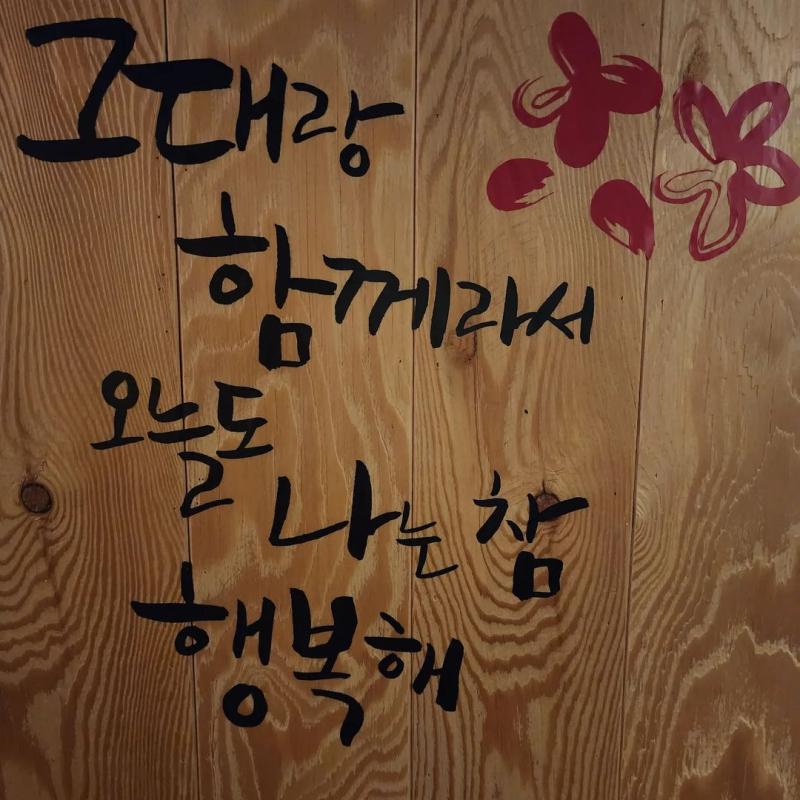 그대랑
함께라서
오늘도
나는 참
행복해